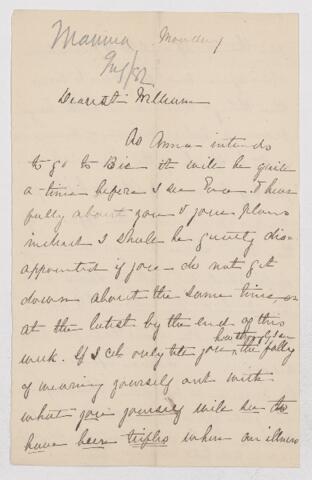 Mamma Monday
Dearest William
As Anna intends
to go to Bic it will be quite
a time before I see Eva & hear
fully about you & your plans
indeed I shall be greatly dis-
appointed if you do not get
down about the same time, or
at the latest by the end of this
week. If I cld only tell you the folly
of wearing yourself out with
what you yourself will see to
have been trifles when an illness